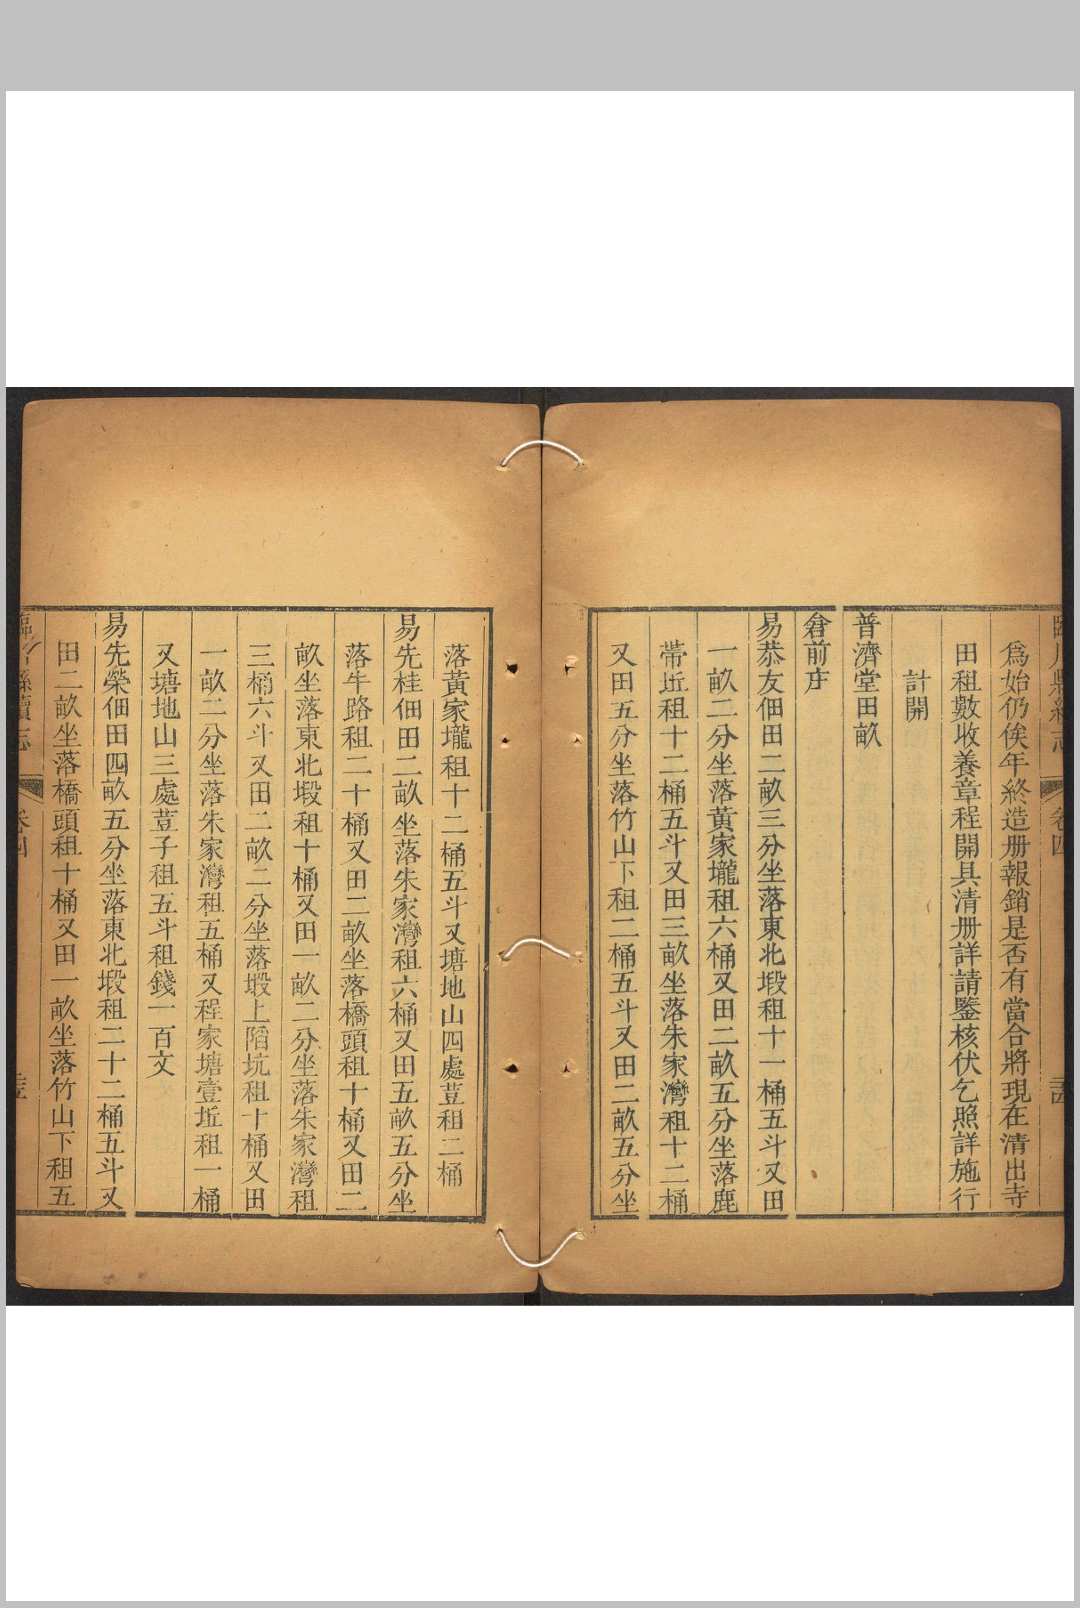 爲始仍俟年終造册報銷是否有當合將現在清出寺
田租數收養章程開具清册詳請鑒核伏乞照詳施行
計開
普濟堂田畝
倉前庄
易恭友佃田二畝三分坐落東北塅租十一桶五斗又田
一畝二分坐落黃家壠租六桶又田二畝五分坐落鹿
帶坵租十二桶五斗又田三畝坐落朱家灣租十二桶
又田五分坐落竹山下租二桶五斗又田二畝五分坐
落黃家壠租十二桶五斗又塘地山四處荳租二桶
易先桂佃田二畝坐落朱家灣租六桶又田五畝五分坐
落牛路租二十桶又田二畝坐落橋頭租十桶又田二
畝坐落東北塅租十桶又田一畝二分坐落朱家灣租
三桶六斗又田二畝二分坐落塅上陷坑租十桶又田
一畝二分坐落朱家灣租五桶又程家塘壹坵租一桶
又塘地山三處荳子租五斗租錢一百文
易先榮佃田四畝五分坐落東北塅租二十二桶五斗又
田二畝坐落橋頭租十桶又田一畝坐落竹山下租五